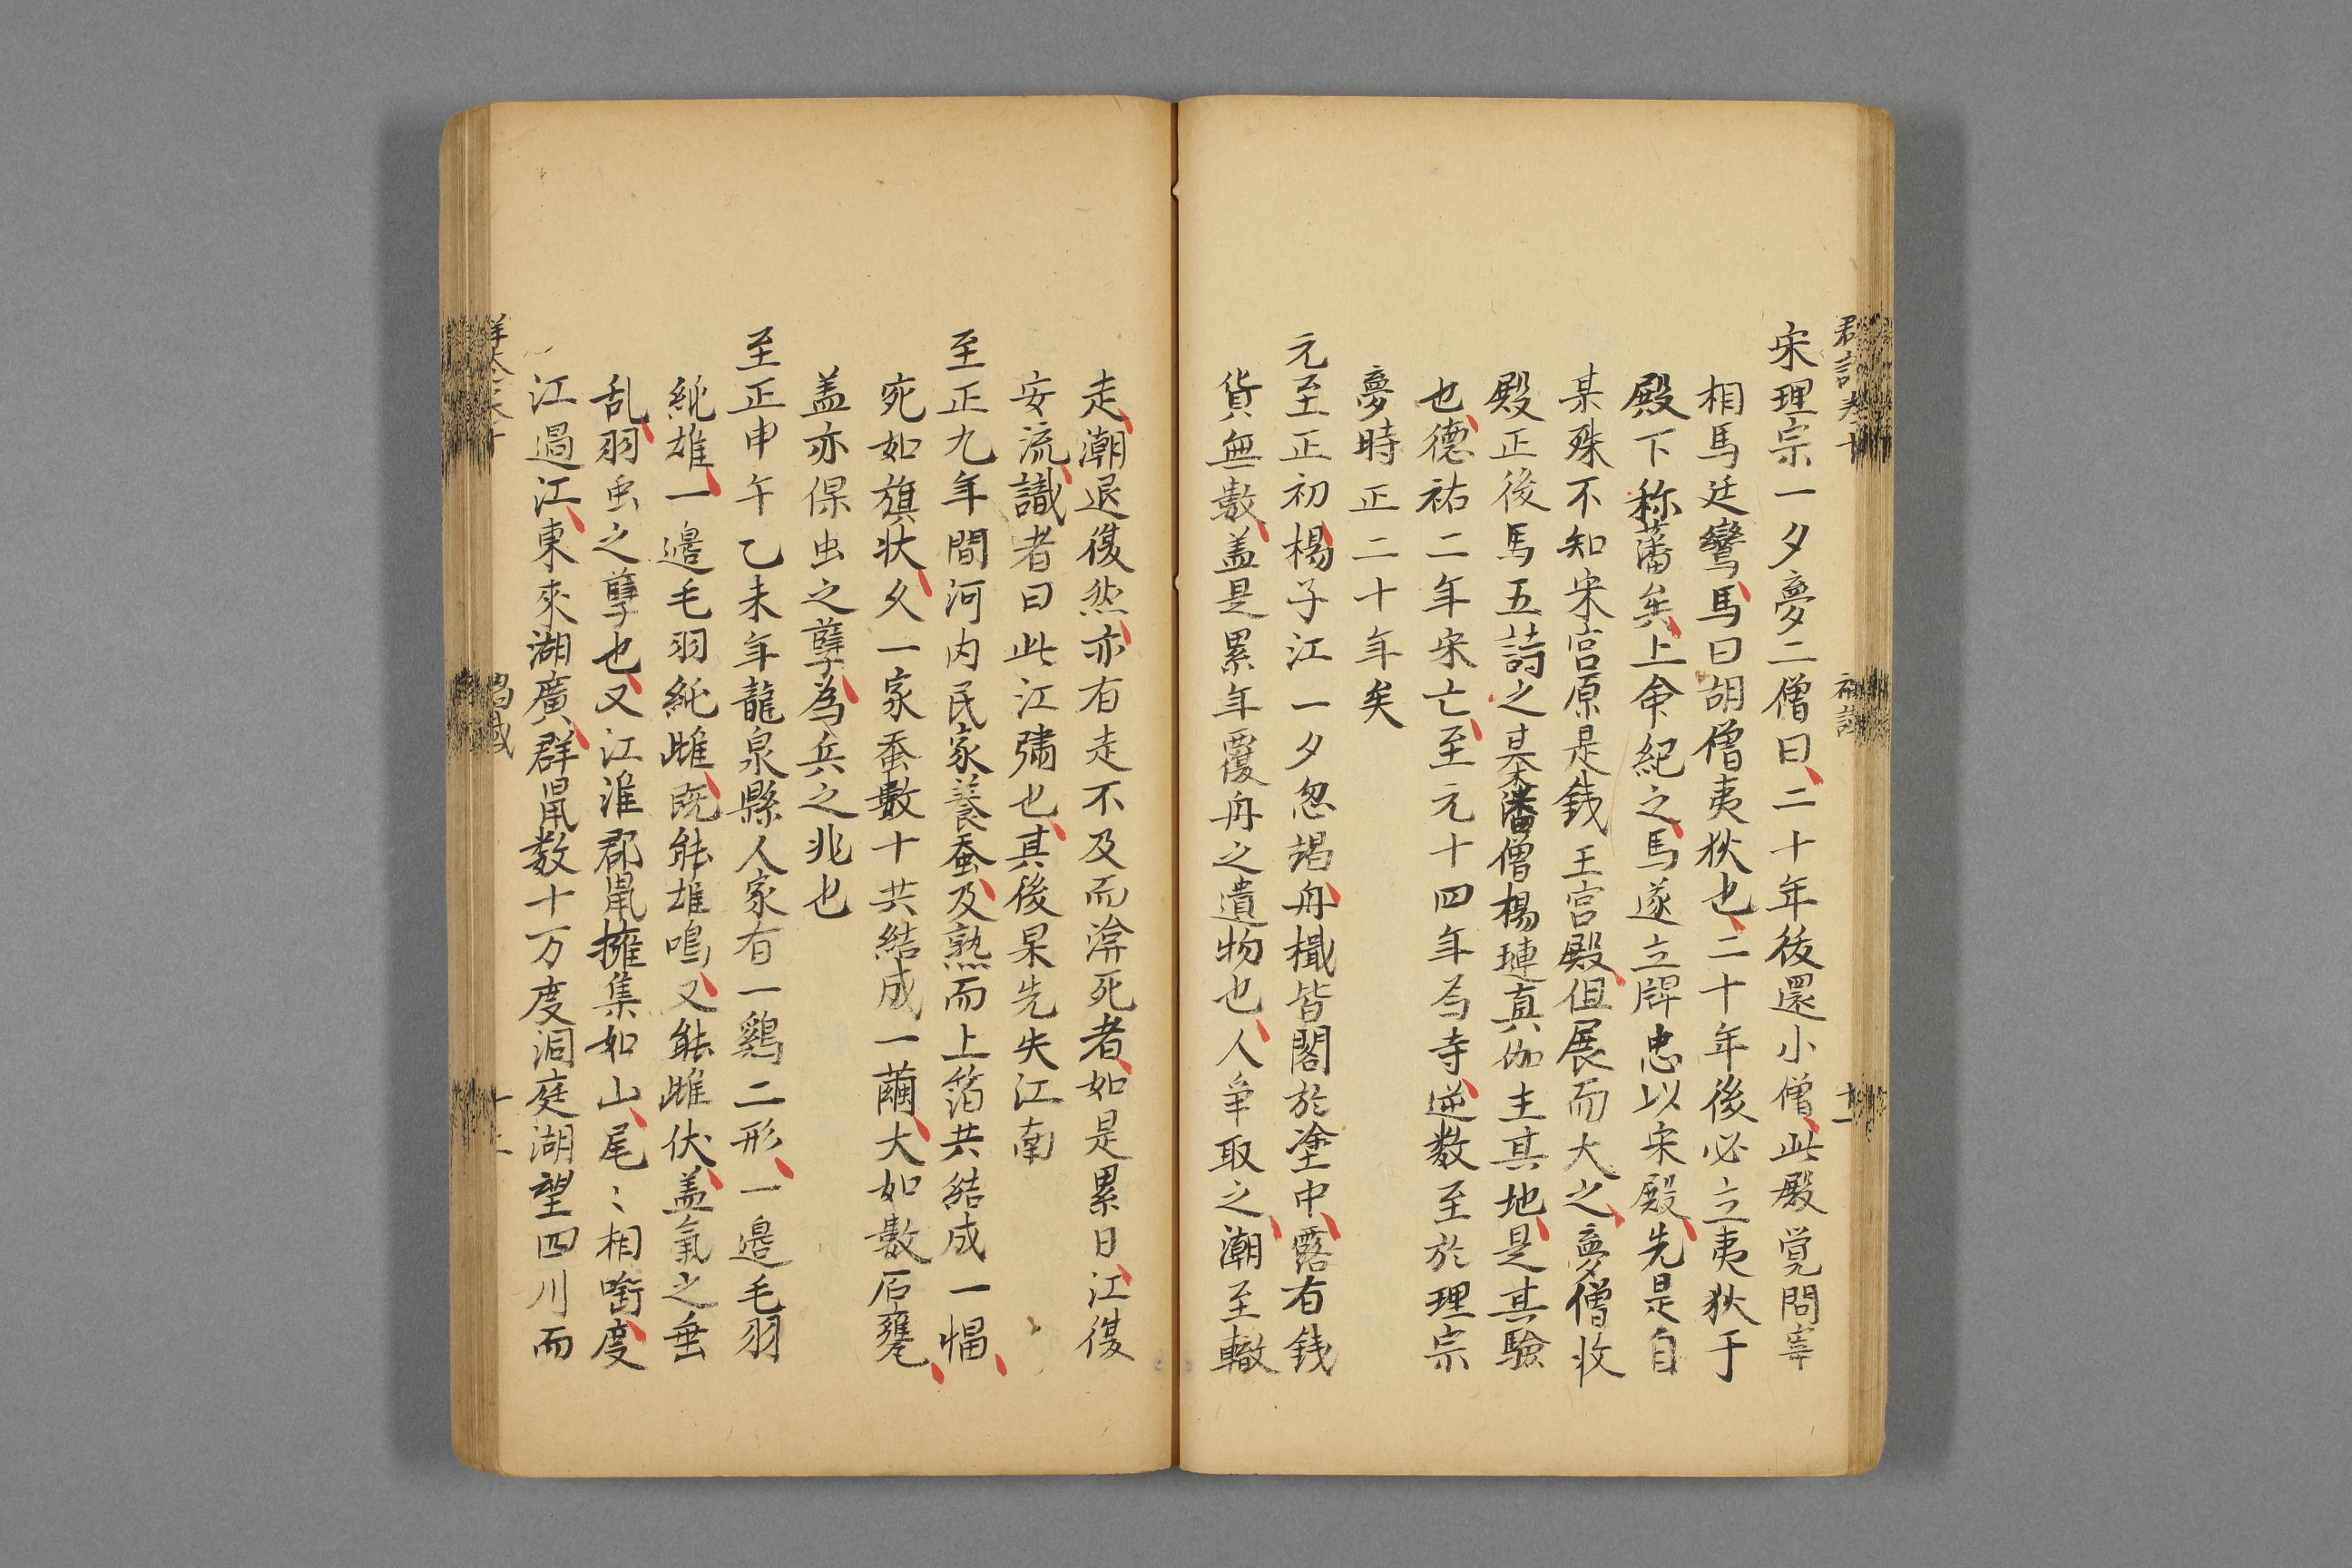 宋理宗一夕夢二僧曰二十年後還小僧此殿覚問宰
相馬廷鸞馬曰胡僧夷狄也二十年後必立夷狄于
殿下称藩矣上命紀之馬遂立牌忠以宋殿先是自
某殊不知宋宫原是銭王宫殿但展而大之夢僧收
殿正後馬五詩之某藩僧楊璉真伽主其地是其驗
也德祐二年宋亡至元十四年为寺逆数至於理宗
夢時正二十年矣
元至正初楊子江一夕忽竭舟檝皆閣於塗中露有銭
貨無數盖是累年覆舟之遺物也人爭取之潮至輙
走潮退復然亦有走不及而渰死者如是累日江復
安流識者曰此江彇也其後杲先失江南
至正九年間河内民家養蚕及熟而上箔共結成一幅
宛如旗状久一家蚕數十共結成一繭大如數石甕
盖亦倮虫之孽為兵之兆也
至正申午乙未年龍泉縣人家有一鷄二形一邉毛羽
純雄一邉毛羽純雌既能雄鳴又能雌伏盖氣之垂
乱羽虫之孽也又江淮郡鼠擁集如山尾〻相啣度
江過江東來湖廣群鼠数十万度洞庭湖望四川而